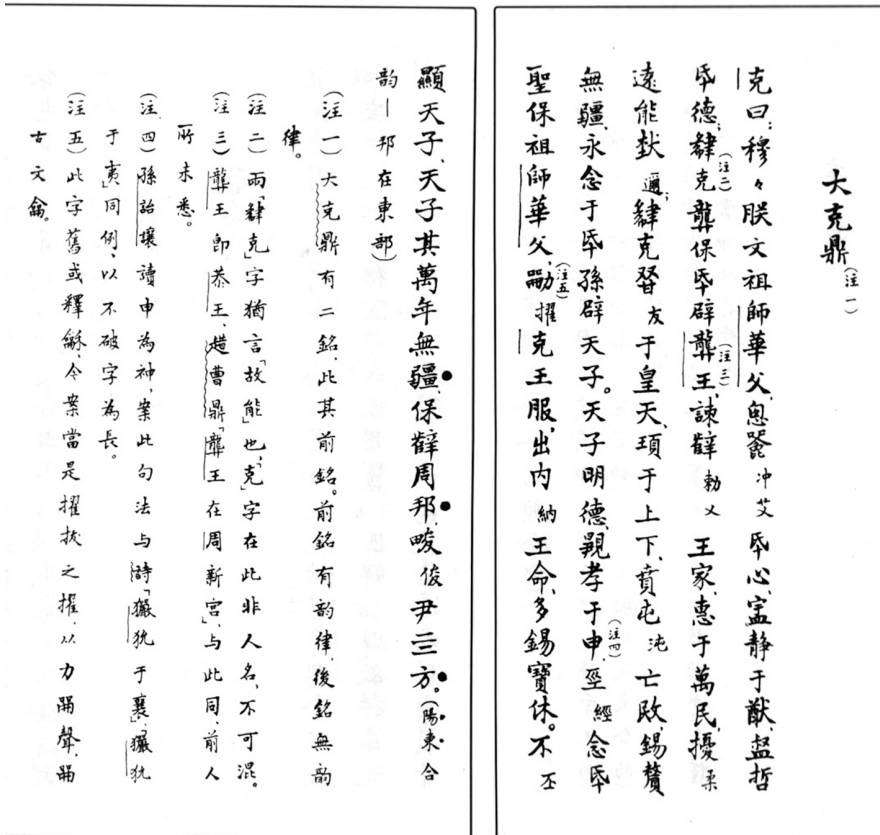 大克鼎(注一)
克曰:穆々朕文祖師華父,悤㐮冲艾氒心,寍静于猷,盄哲
氒德;肆(注二)克龏保氒辟龏(注三)王,諫辥敕乂王家,惠于萬民,擾柔
遠能㹤邇;肆克友于皇天,頊于上下,賁屯沌亡敃,錫贅
無疆,永念于氒孫辟天子。天子明德,顯孝于申(注四),巠經念氒
聖保祖師華父,(注五)擢克王服,出内納王命,多錫寶休。不丕
顯天子,天子其萬年無疆,保辥周邦,畯俊尹三方。(陽東合
韵—邦在東部)
(注一)大克鼎有二銘,此其前銘。前銘有韵律,後銘無韵
律。
(注二)兩「肆克」字猶言「故能」也,「克」字在此非人名,不可混。
(注三)龏王即恭王,趞曹鼎「龏王在周新宫」,与此同,前人
所未悉。
(注四)孫詒讓讀申為神,案此句法与詩「玁狁于襄」,「玁狁
于夷」同例,以不破字為長。
(注五)此字舊或釋龢,今案當是擢拔之擢,从力㗊聲,㗊
古文龠。